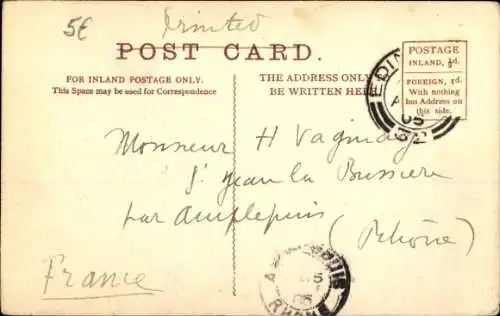 5€
Printed
POST CARD.
FOR INLAND POSTAGE ONLY.
This Space may be used for Correspondence
THE ADDRESS ONLY
BE WRITTEN HERE
POSTAGE
INLAND, ½d.
FOREIGN, 1d.
With nothing
but Address on
this side.
EDIN
05
Monsieur H Vaginay
St Jean la Bussiere
par Amplepuis
(Rhône)
France
05
RHONE